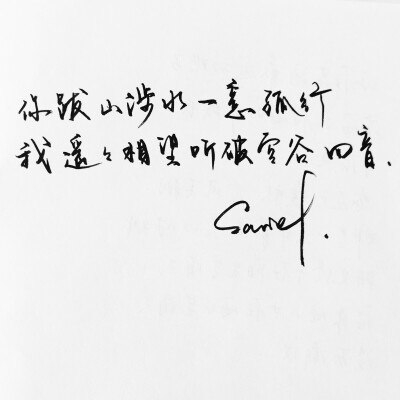 你跋山涉水一意孤行
我遥々相望听破空谷回音.
Sariel.